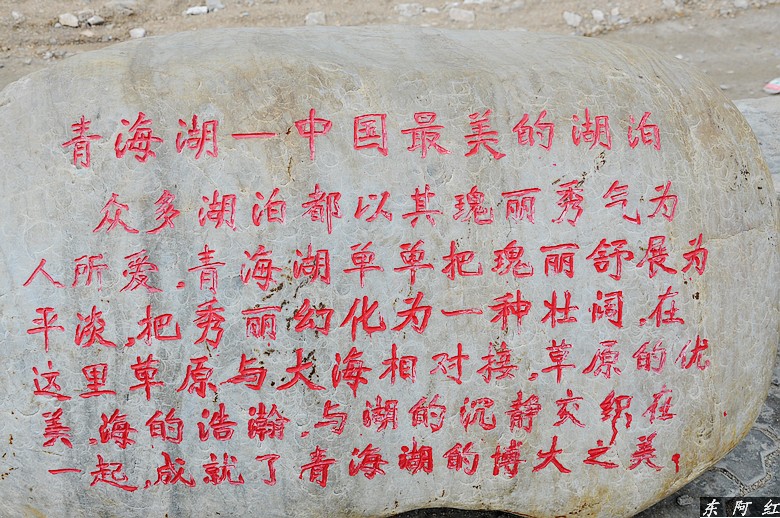 青海湖—中国最美的湖泊
众多湖泊都以其瑰丽秀气为
人所爱,青海湖单单把瑰丽舒展为
平淡,把秀丽幻化为一种壮阔,在
这里草原与大海相对接,草原的优
美,海的浩瀚,与湖的沉静交织在
一起,成就了青海湖的博大之美,
东阿红